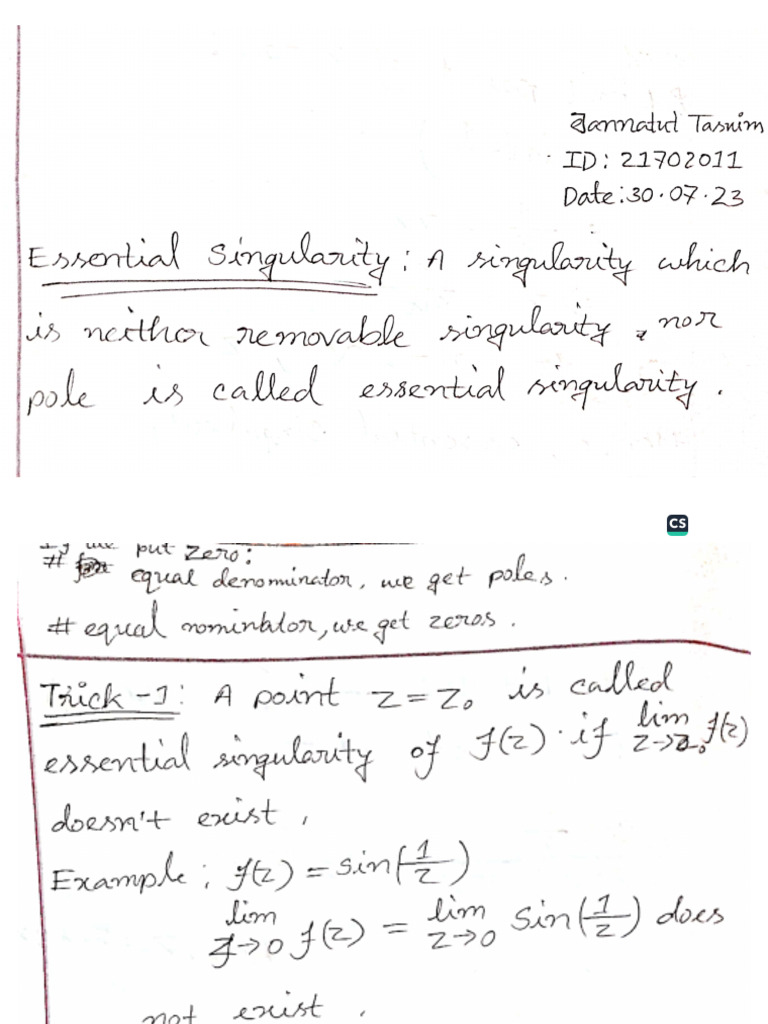 Jannatul Tasnim
ID: 21702011
Date: 30.07.23
Essential Singularity: A singularity which
is neithor removable singularity, nor
pole is called essential singularity.
CS
If we put zero:
# equal denominator, we get poles.
# equal nominator, we get zeros.
Trick-1: A point z = z₀ is called
essential singularity of f(z) if lim z→z₀ f(z)
doesn't exist,
Example: f(z) = sin(1/z)
lim z→0 f(z) = lim z→0 sin(1/z) does
not exist.